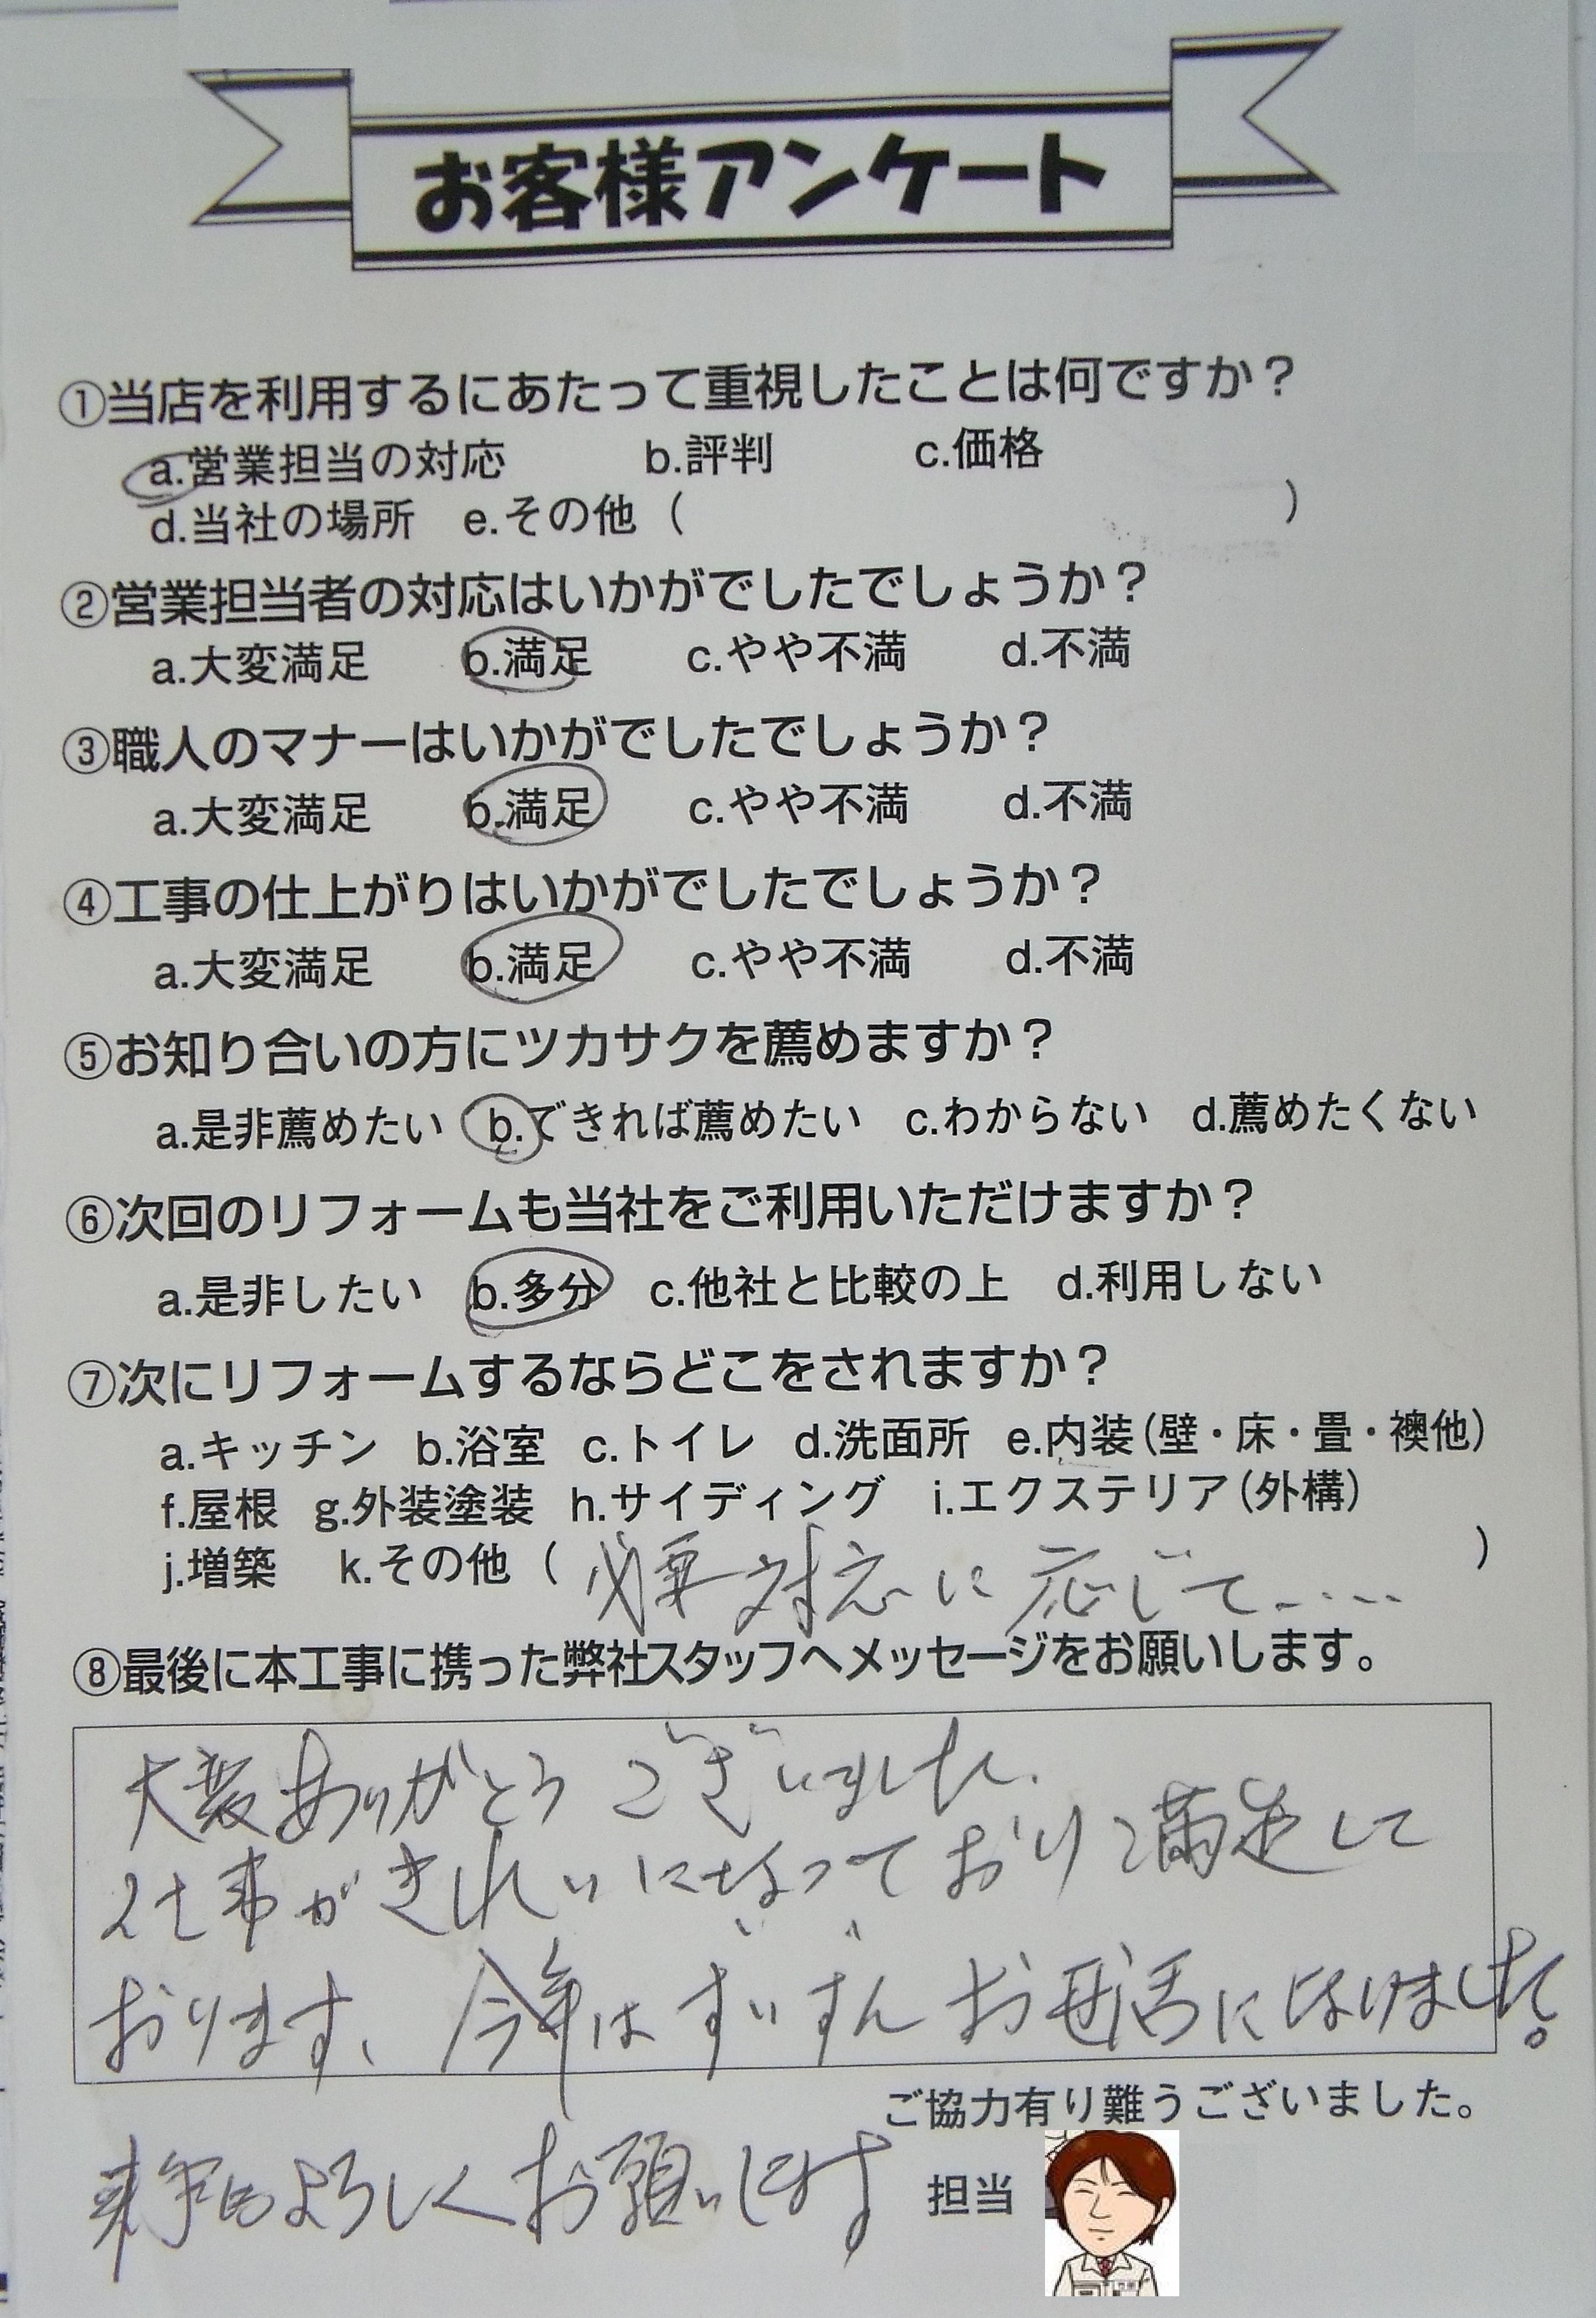 お客様アンケート
①当店を利用するにあたって重視したことは何ですか？
a.営業担当の対応 b.評判 c.価格
d.当社の場所 e.その他（ ）
②営業担当者の対応はいかがでしたでしょうか？
a.大変満足 b.満足 c.やや不満 d.不満
③職人のマナーはいかがでしたでしょうか？
a.大変満足 b.満足 c.やや不満 d.不満
④工事の仕上がりはいかがでしたでしょうか？
a.大変満足 b.満足 c.やや不満 d.不満
⑤お知り合いの方にツカサクを薦めますか？
a.是非薦めたい b.できれば薦めたい c.わからない d.薦めたくない
⑥次回のリフォームも当社をご利用いただけますか？
a.是非したい b.多分 c.他社と比較の上 d.利用しない
⑦次にリフォームするならどこをされますか？
a.キッチン b.浴室 c.トイレ d.洗面所 e.内装（壁・床・畳・襖他）
f.屋根 g.外装塗装 h.サイディング i.エクステリア（外構）
j.増築 k.その他（必要対応に応じて....）
⑧最後に本工事に携った弊社スタッフへメッセージをお願いします。
大変ありがとうございました.
仕事がきれいになっており満足して
おります、今年はずいずんお世話になりました。
ご協力有り難うございました。
来年もよろしくお願いします
担当